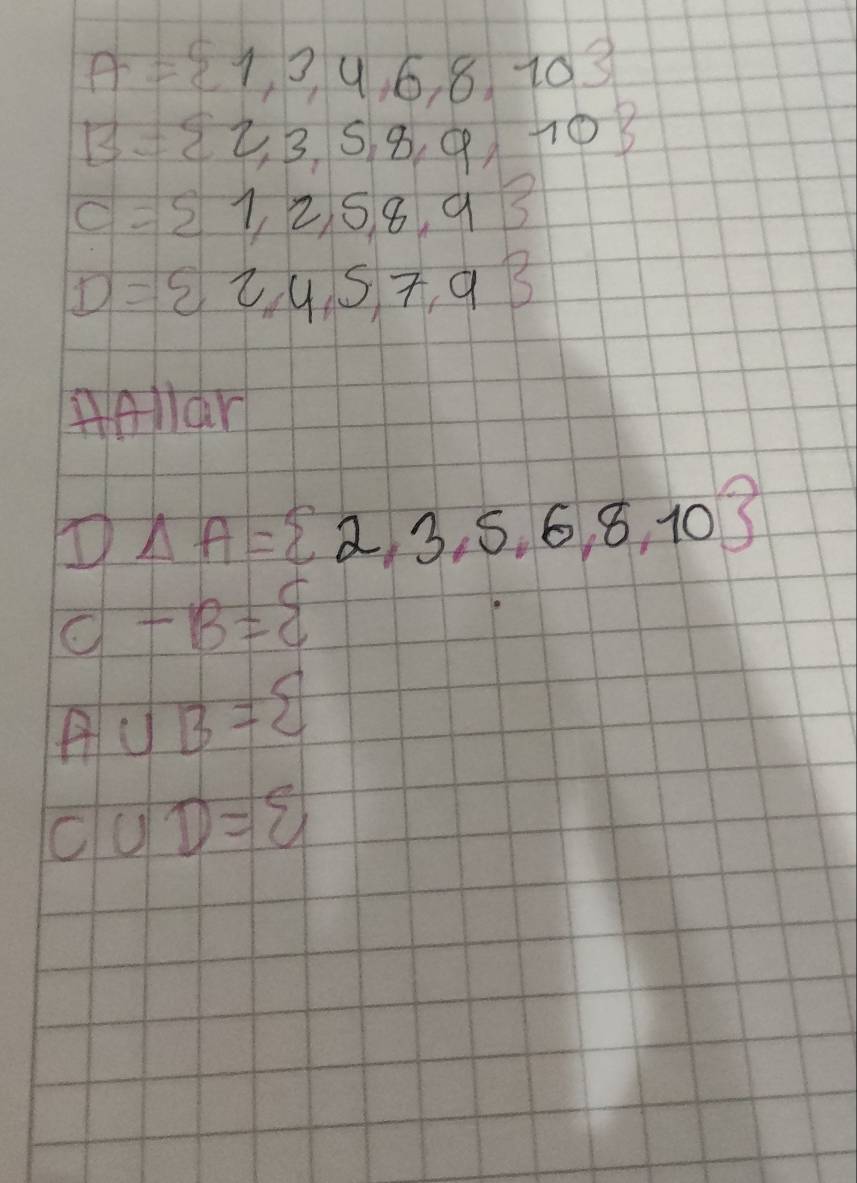 A = { 1, 3, 4, 6, 8, 10 }
B = { 2, 3, 5, 8, 9, 10 }
C = { 1, 2, 5, 8, 9 }
D = { 2, 4, 5, 7, 9 }
AAllar
D Δ A = { 2, 3, 5, 6, 8, 10 }
C - B = {
A ∪ B = {
C ∪ D = {